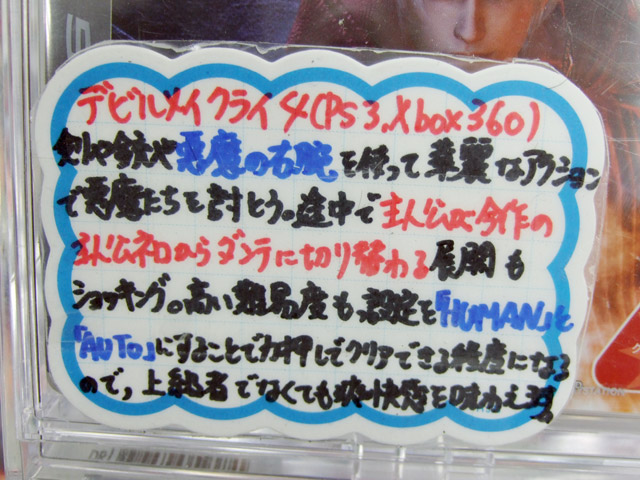 デビルメイクライ4(PS3,Xbox360)
剣や銃や悪魔の右腕を使って華麗なアクション
で悪魔たちを討とう。途中で主人公が今作の
主人公ネロからダンテに切り替わる展開も
ショッキング。高い難易度も、設定を「HUMAN」と
「AUTO」にすることで力押しでクリアできる程度になる
ので、上級者でなくても爽快感を味わえる。